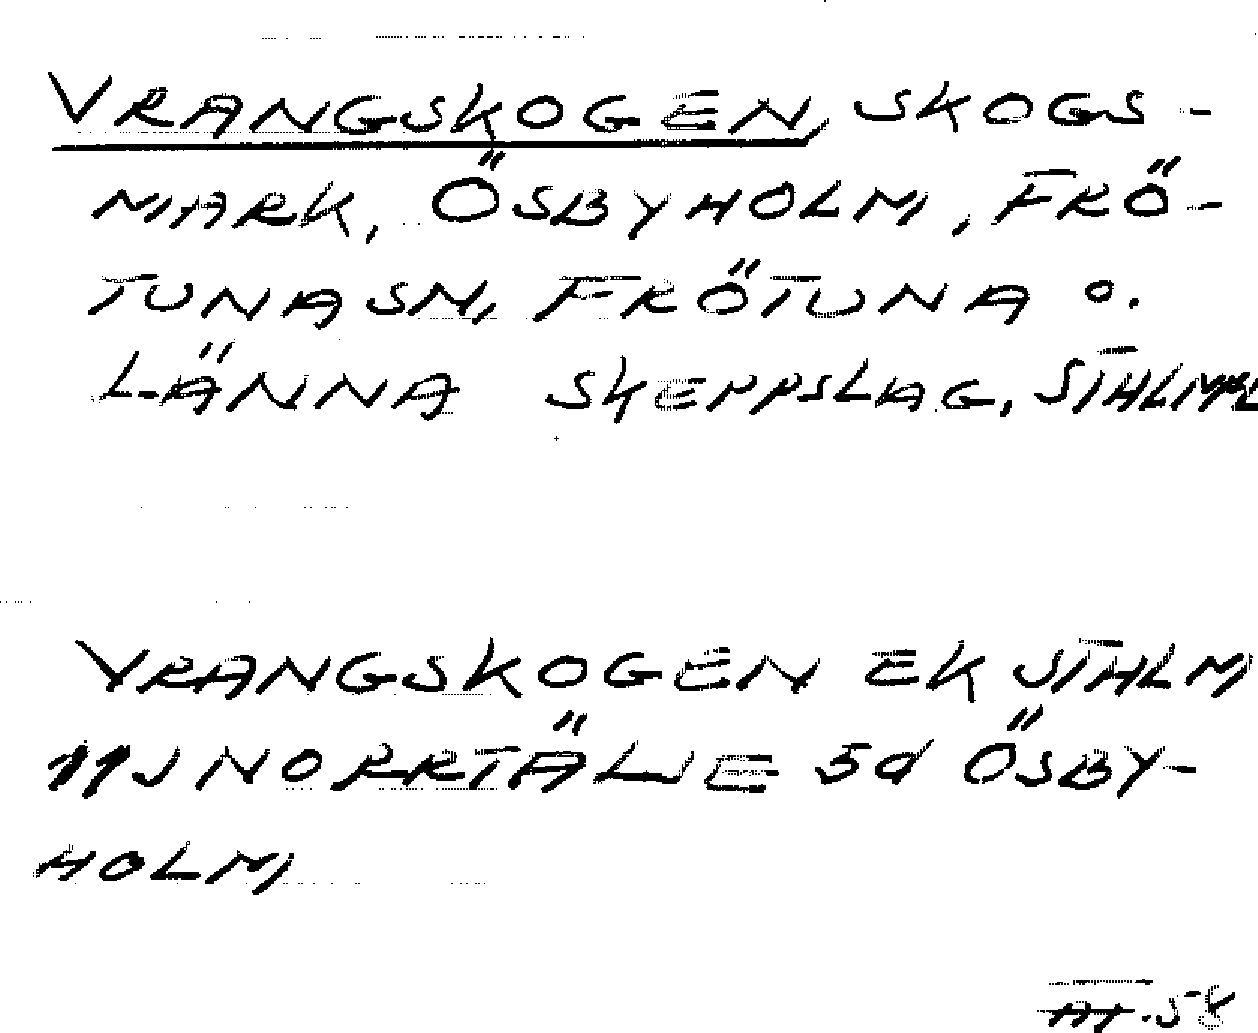 VRANGSKOGEN, SKOGS-
MARK, ÖSBYHOLM, FRÖ-
TUNA SN, FRÖTUNA O.
LÄNNA SKEPPSLAG, STHLM
VRANGSKOGEN EK STHLM
11J NORRTÄLJE 5d ÖSBY-
HOLM